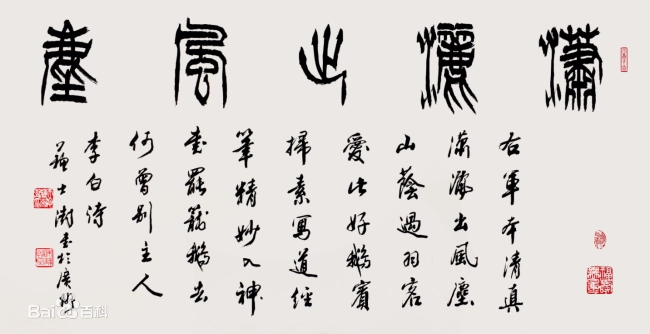 瀟灑出風塵
右軍本清真
瀟灑出風塵
山蔭過羽客
愛此好鵝賓
掃素寫道經
筆精妙入神
書罷籠鵝去
何曾別主人
李白詩
蘇士澍書於
Baidu百科